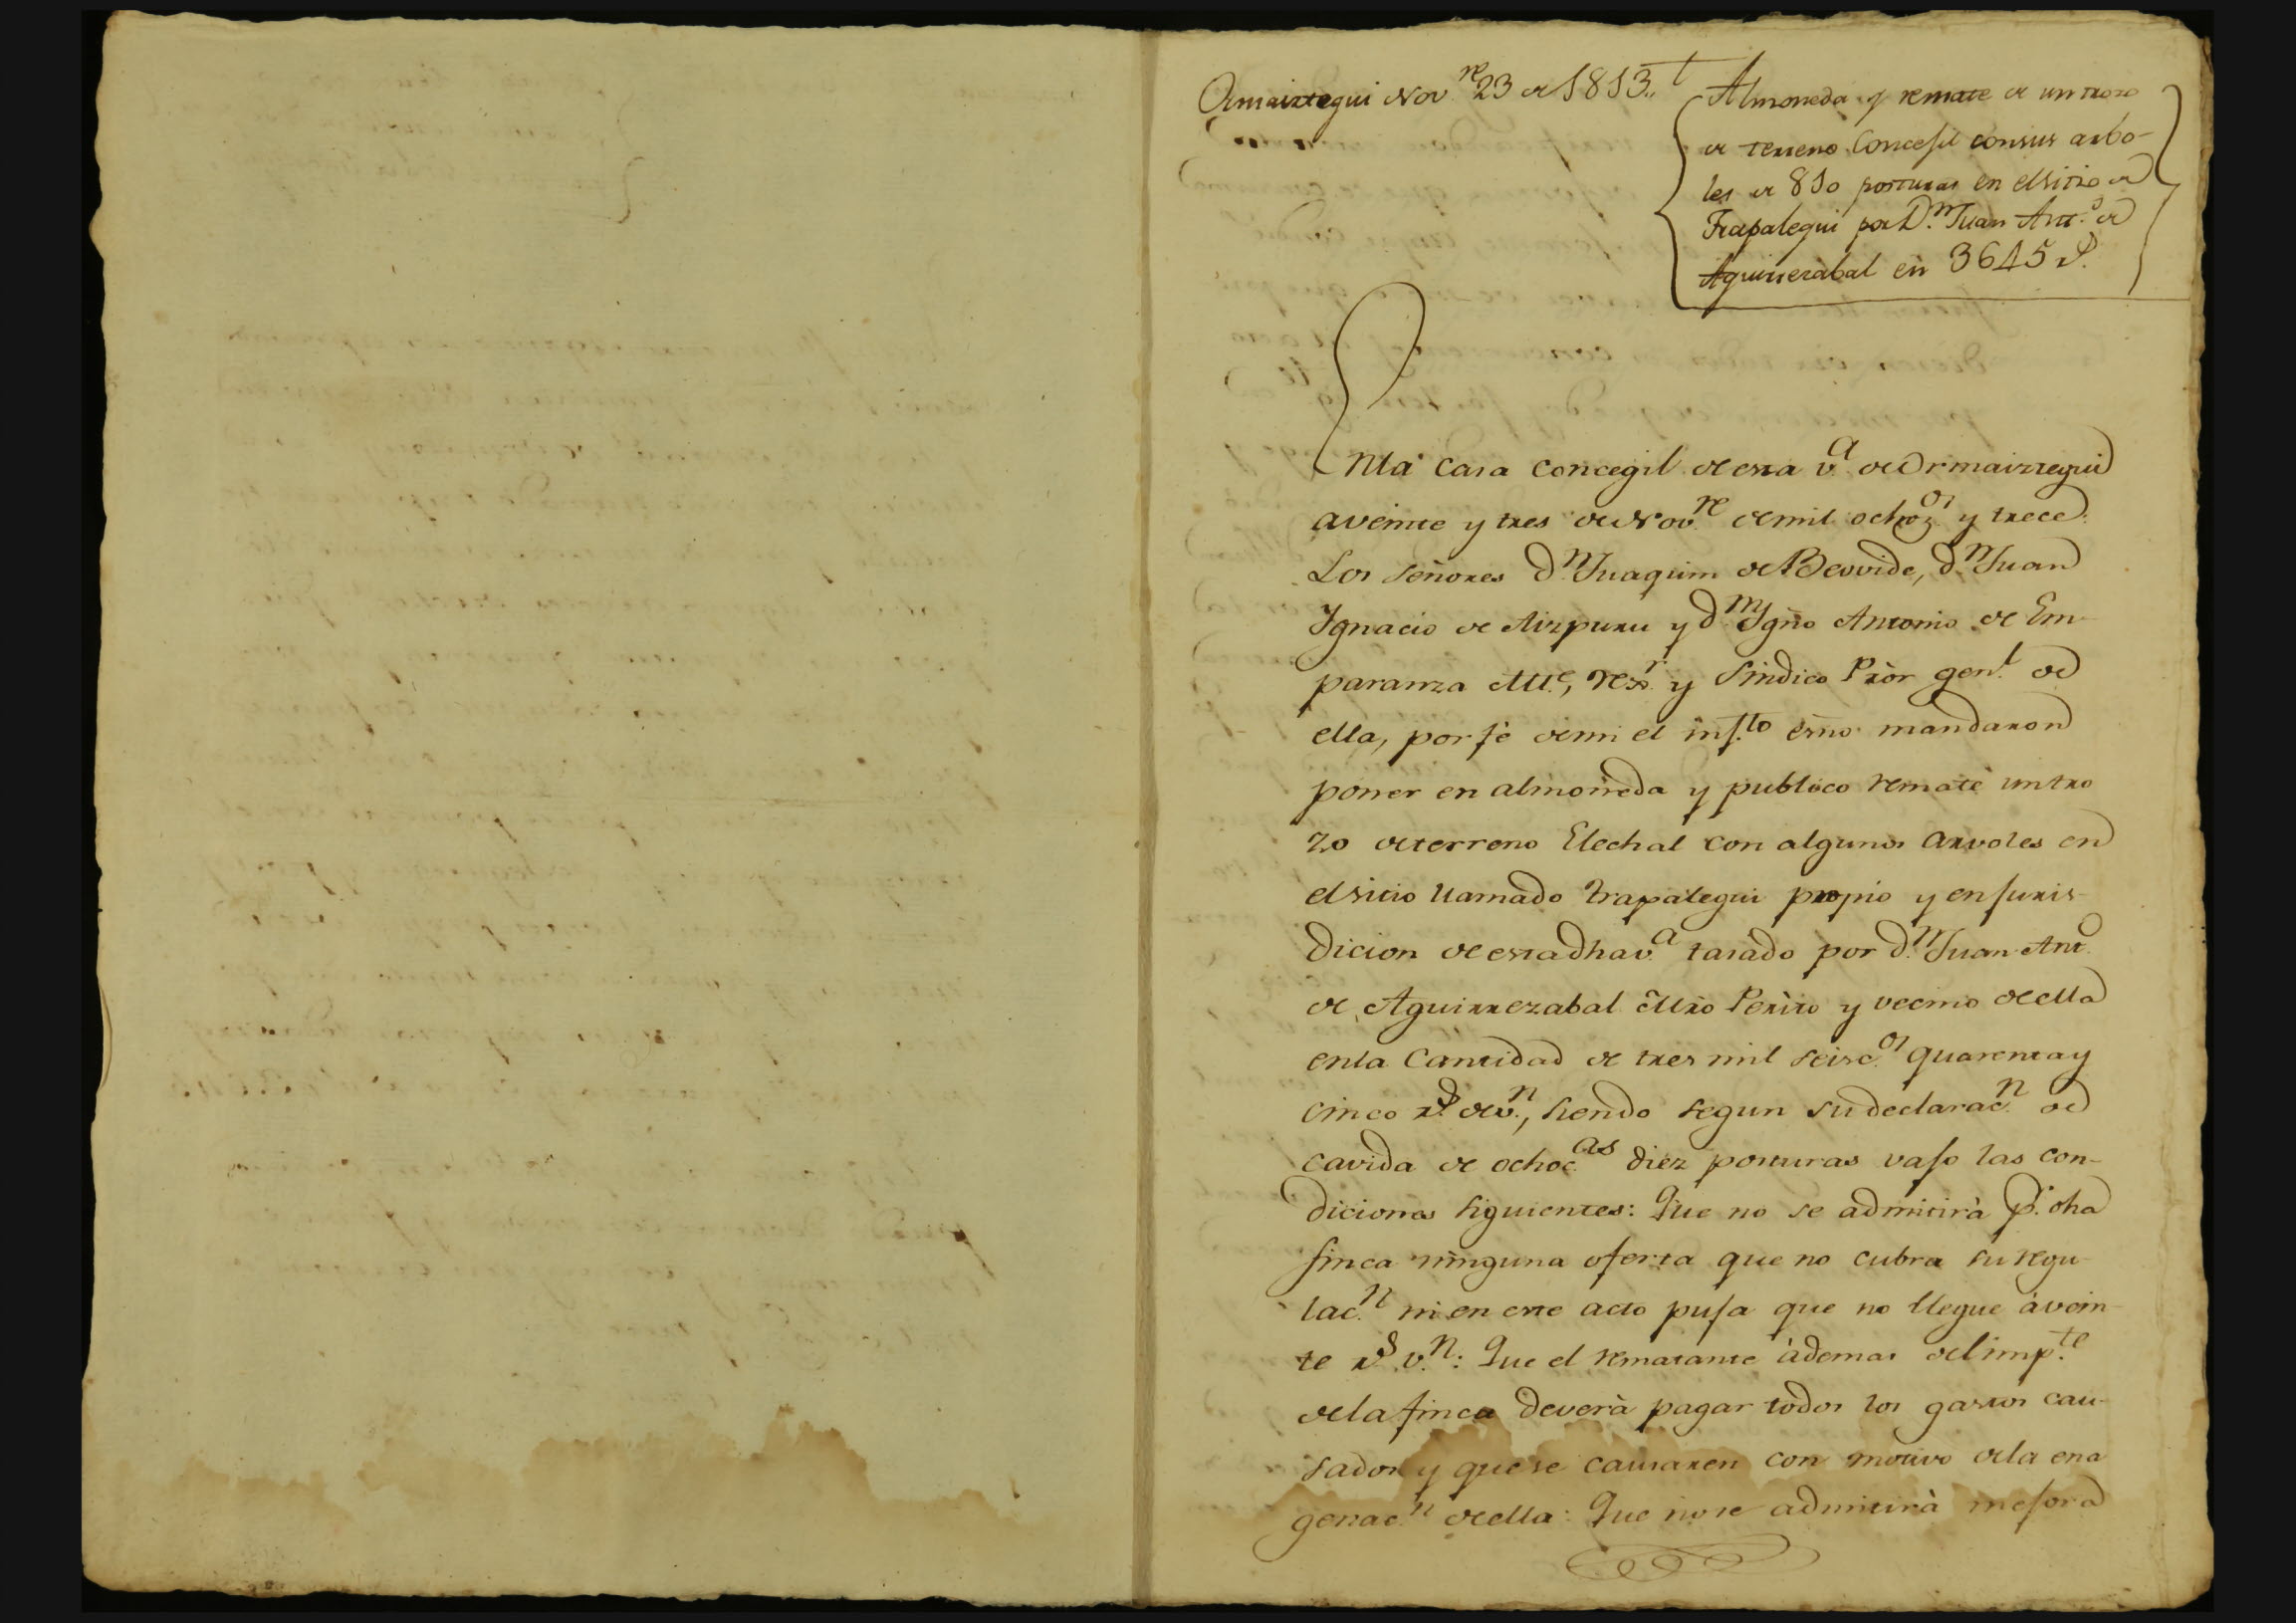 Ormaiztegui Nov.re 23 de 1813.,
Almoneda y remate de un trozo
de terreno Concejil con sus arbo-
les de 810 posturas en el sitio de
Trapalegui por D.n Juan Ant.o de
Aguirrezabal en 3645 r.s
En la Casa concegil de esta v.a de Ormaiztegui
a veinte y tres de Nov.re de mil ochoz.os y trece.
Los señores d.n Juaquin de Beovide, d.n Juan
Ygnacio de Aizpuru y d.n Ygño Antonio de Em-
paranza All.e, rex.r y Sindico Pròr gen.l de
ella, por fè de mi el inf.to esño mandaron
poner en almoneda y publico remate un tro
zo de terreno Elechal con algunos arvoles en
el sitio llamado trapalegui propio y en juris-
dicion de esta dha v.a tasado por d.n Juan Ant.o
de Aguirrezabal Mrò Perito y vecino de ella
en la Cantidad de tres mil seisc.os quarenta y
cinco r.s de v.n, siendo segun su declarac.n de
cavida de ochoc.as diez posturas vajo las con-
diciones siguientes: Que no se admitirà p.r dha
finca ninguna oferta que no cubra su regu
lac.n ni en este acto puja que no llegue à vein-
te r.s v.n: Que el rematante àdemas del imp.te
de la finca deverà pagar todos los gastos cau-
sados y que se causaren con motivo de la ena
genac.n de ella: Que no se admitirà mejora